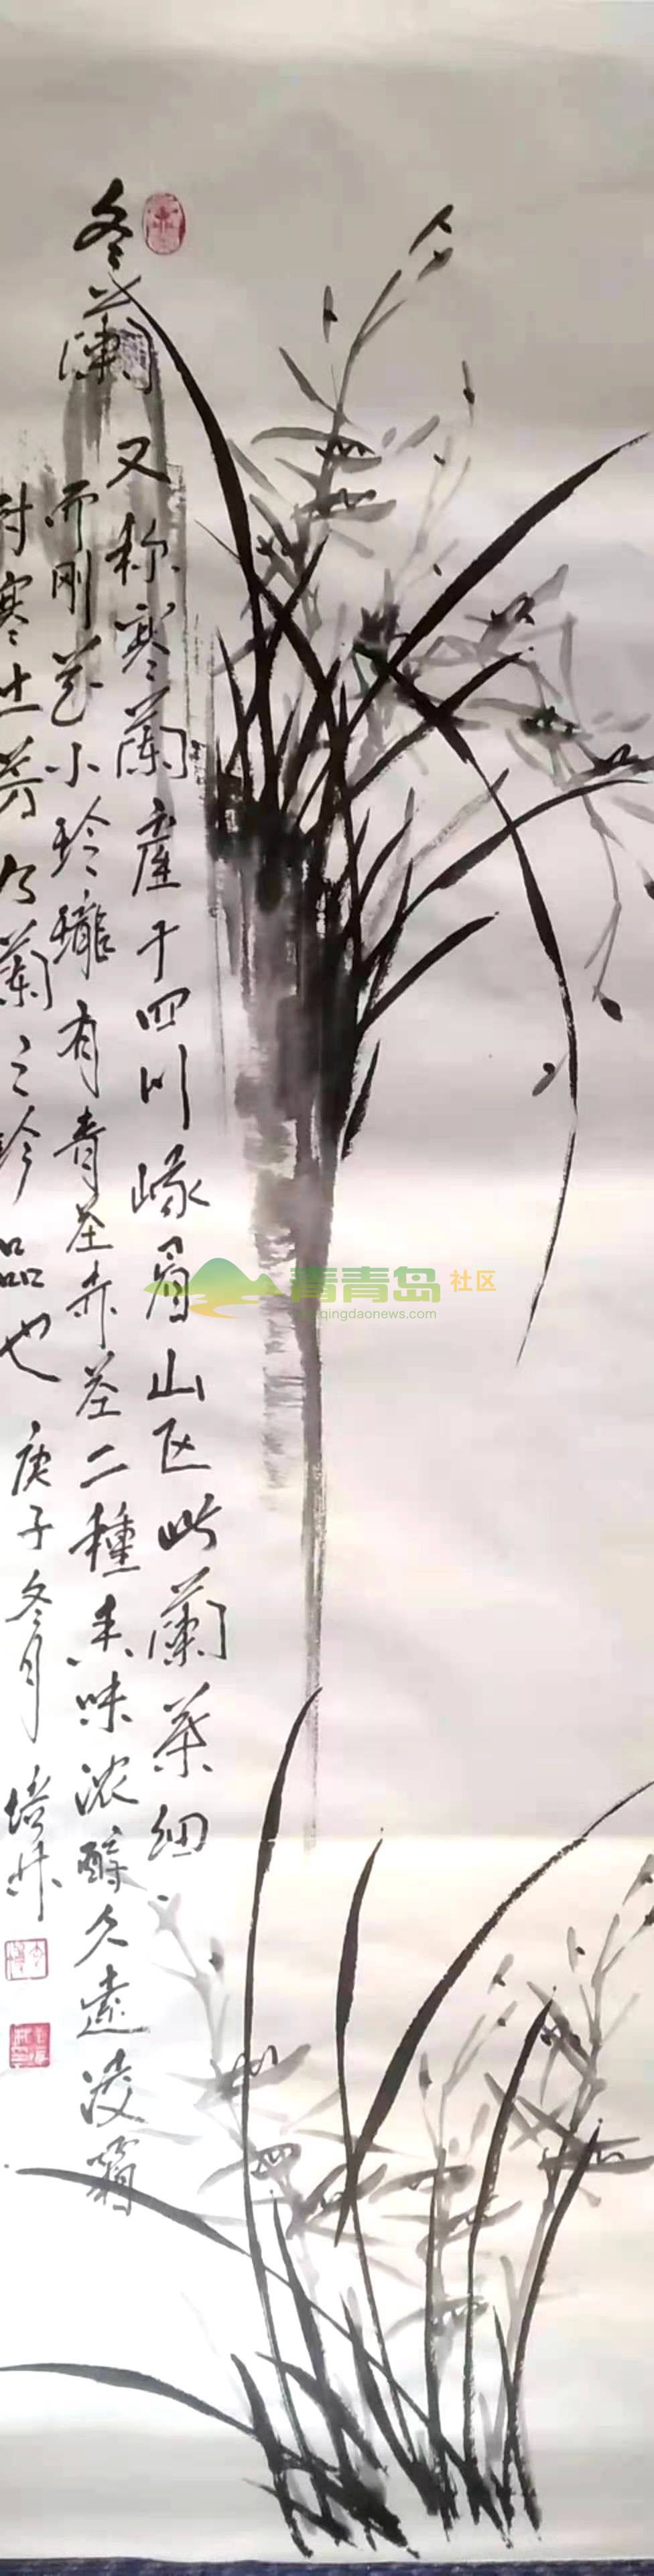 冬蘭
又称寒蘭產于四川峨眉山区此蘭葉细
而刚花小玲瓏有青茎赤茎二種香味浓醇久遠凌霜
耐寒吐芳乃蘭之珍品也
庚子冬月
青青岛社区
qingdaonews.com